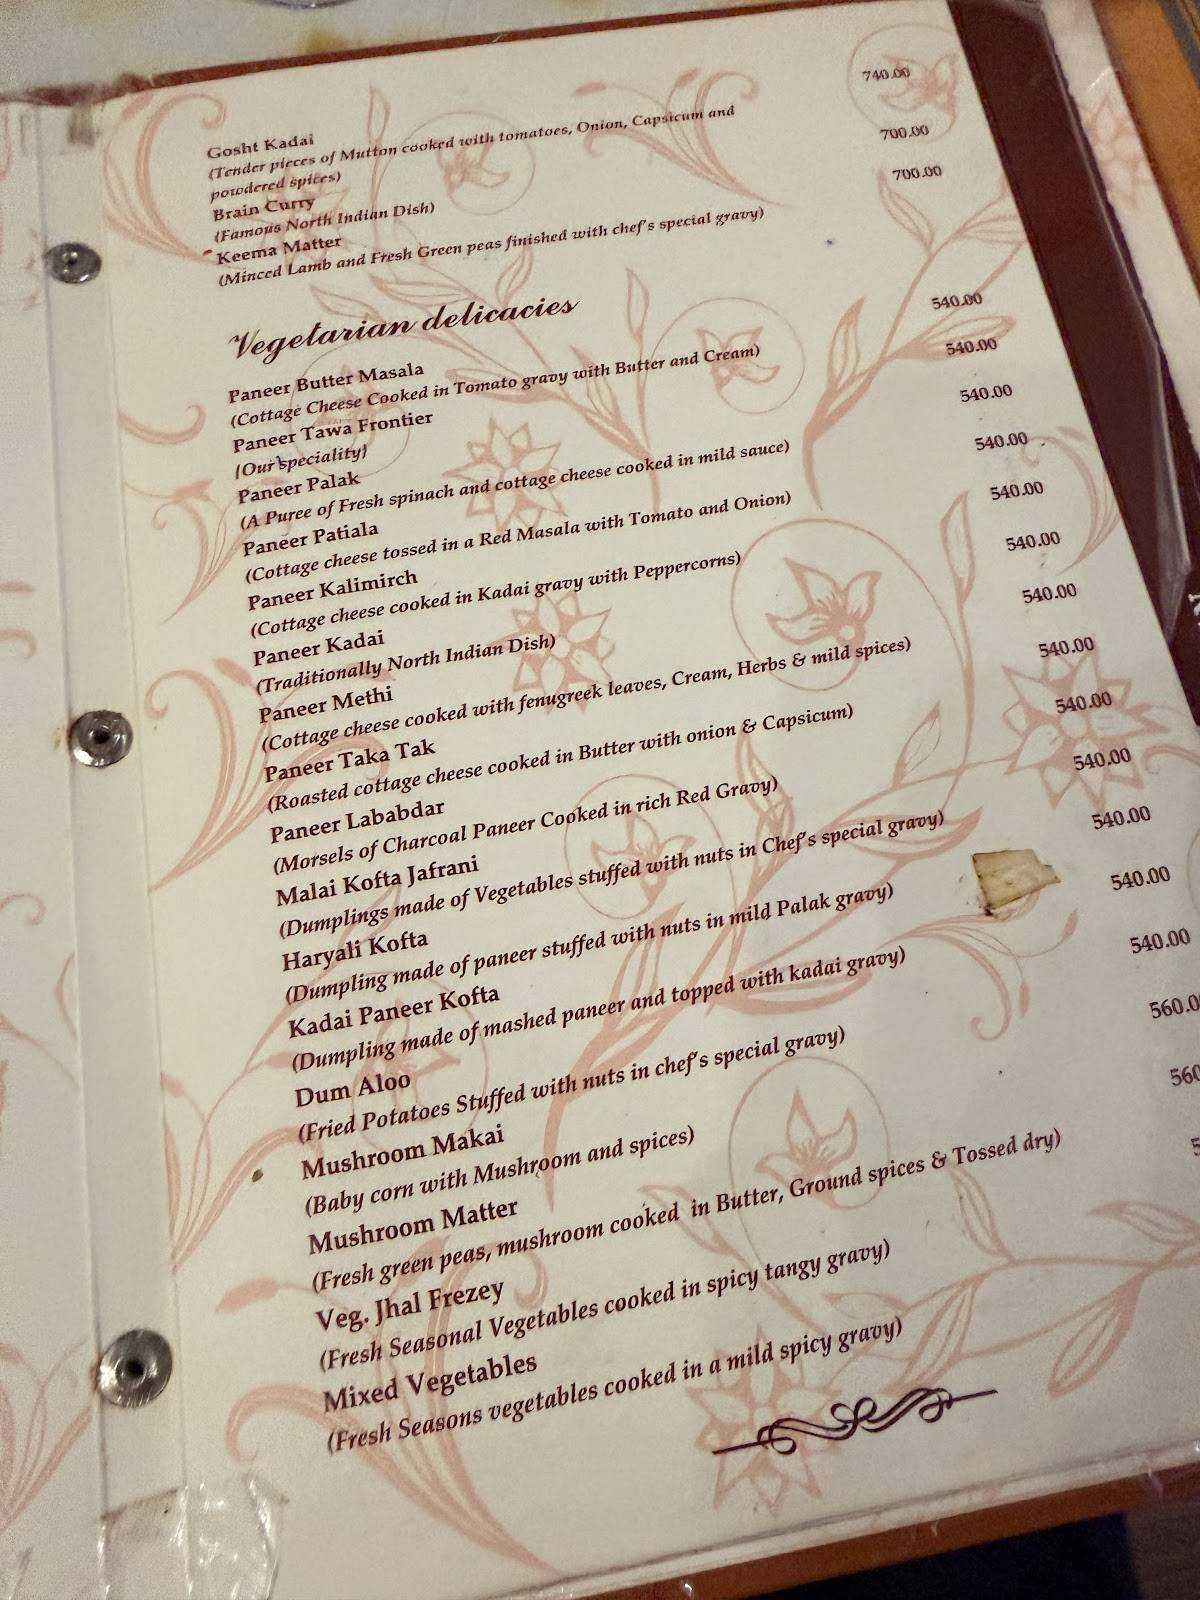 Gosht Kadai 740.00
(Tender pieces of Mutton cooked with tomatoes, Onion, Capsicum and
powdered spices)
Brain Curry 700.00
(Famous North Indian Dish)
Keema Matter 700.00
(Minced Lamb and Fresh Green peas finished with chef's special gravy)
Vegetarian delicacies
Paneer Butter Masala 540.00
(Cottage Cheese Cooked in Tomato gravy with Butter and Cream)
Paneer Tawa Frontier 540.00
(Our speciality)
Paneer Palak 540.00
(A Puree of Fresh spinach and cottage cheese cooked in mild sauce)
Paneer Patiala 540.00
(Cottage cheese tossed in a Red Masala with Tomato and Onion)
Paneer Kalimirch 540.00
(Cottage cheese cooked in Kadai gravy with Peppercorns)
Paneer Kadai 540.00
(Traditionally North Indian Dish)
Paneer Methi 540.00
(Cottage cheese cooked with fenugreek leaves, Cream, Herbs & mild spices)
Paneer Taka Tak 540.00
(Roasted cottage cheese cooked in Butter with onion & Capsicum)
Paneer Lababdar 540.00
(Morsels of Charcoal Paneer Cooked in rich Red Gravy)
Malai Kofta Jafrani 540.00
(Dumplings made of Vegetables stuffed with nuts in Chef's special gravy)
Haryali Kofta 540.00
(Dumpling made of paneer stuffed with nuts in mild Palak gravy)
Kadai Paneer Kofta 540.00
(Dumpling made of mashed paneer and topped with kadai gravy)
Dum Aloo 540.00
(Fried Potatoes Stuffed with nuts in chef's special gravy)
Mushroom Makai 560.0
(Baby corn with Mushroom and spices)
Mushroom Matter 560
(Fresh green peas, mushroom cooked in Butter, Ground spices & Tossed dry)
Veg. Jhal Frezey 5
(Fresh Seasonal Vegetables cooked in spicy tangy gravy)
Mixed Vegetables
(Fresh Seasons vegetables cooked in a mild spicy gravy)